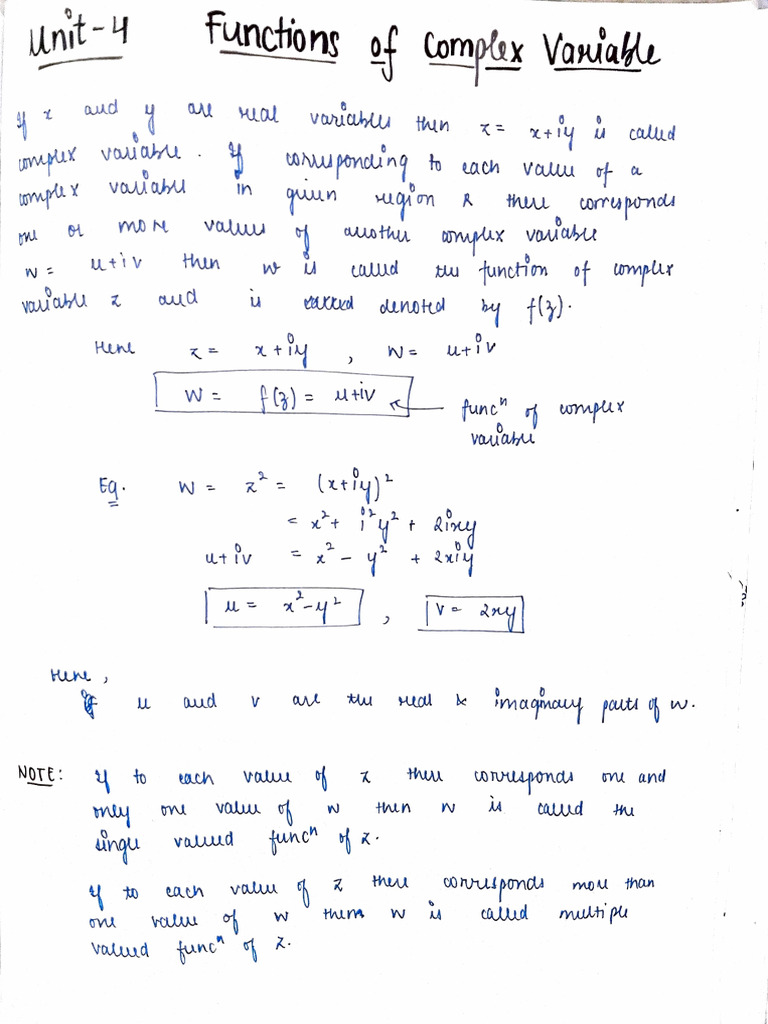 Unit-4 Functions of Complex Variable
If x and y are real variables then z = x+iy is called
complex variable. If corresponding to each value of a
complex variable in given region R there corresponds
one or more values of another complex variable
w = u+iv then w is called the function of complex
variable z and is denoted by f(z).
Here z = x+iy , w = u+iv
w = f(z) = u+iv ← funcⁿ of complex
variable
Eg. w = z² = (x+iy)²
= x² + i²y² + 2ixy
u+iv = x² - y² + 2xiy
u = x²-y² , v = 2xy
Here,
u and v are the real & imaginary parts of w.
NOTE: If to each value of z there corresponds one and
only one value of w then w is called the
single valued funcⁿ of z.
If to each value of z there corresponds more than
one value of w then w is called multiple
valued funcⁿ of z.